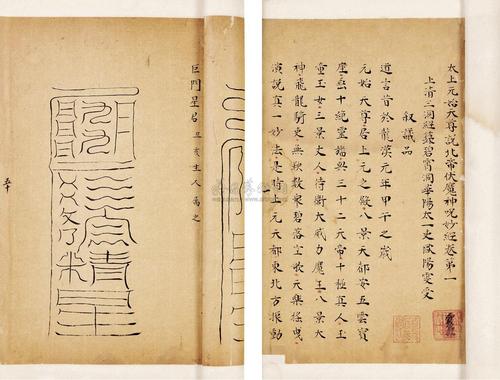 太上元始天尊說北帝伏魔神咒妙經卷第一
上清三洞經籙碧霄洞華陽太一吏歐陽雯受
叙議品
道言昔於龍漢元年甲午之歲
元始天尊居上元之殿八景天都安五雲寶
座十絕靈旛與三十二天帝十極真人玉
童玉女三景丈人侍衛大威力魔王八景大
神飛龍騎吏無鞅數衆碧落空歌元樂搖曳
演說真一妙法是時上元天都東北方振動
巨門星君 丑亥生人屬之